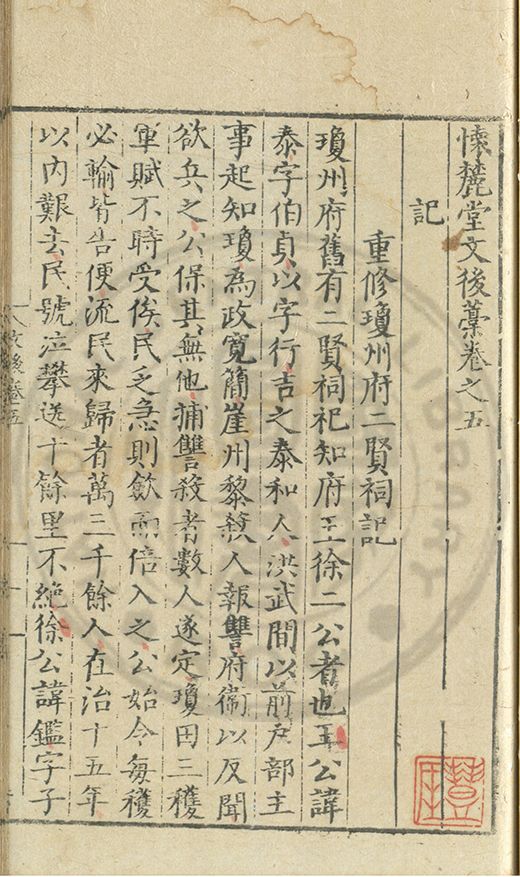 懷麓堂文後藁卷之五
記
重修瓊州府二賢祠記
瓊州府舊有二賢祠祀知府王徐二公者也王公諱
泰字伯貞以字行吉之泰和人洪武間以前戶部主
事起知瓊為政寬簡崖州黎殺人報讐府衞以反聞
欲兵之公保其無他捕讐殺者數人遂定瓊田三穫
軍賦不時受俟民乏急則歛而倍入之公始令每穫
必輸皆告便流民來歸者萬三千餘人在治十五年
以內艱去民號泣攀送十餘里不絶徐公諱鑑字子
文後卷五